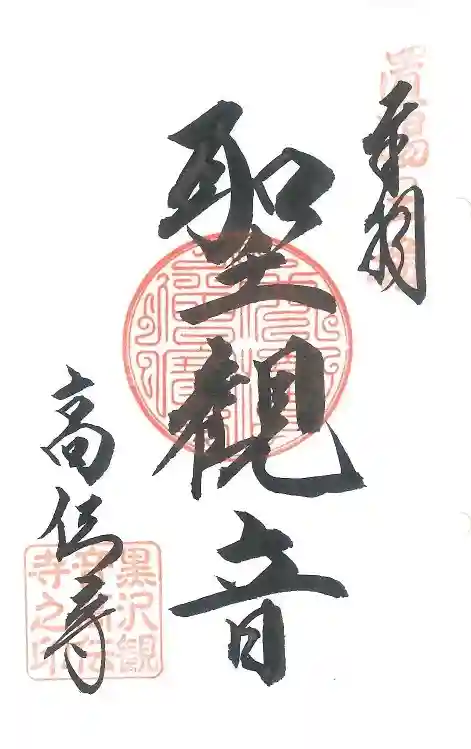 奉拝
聖観音
高伝寺
黒沢観
音高伝
寺之印